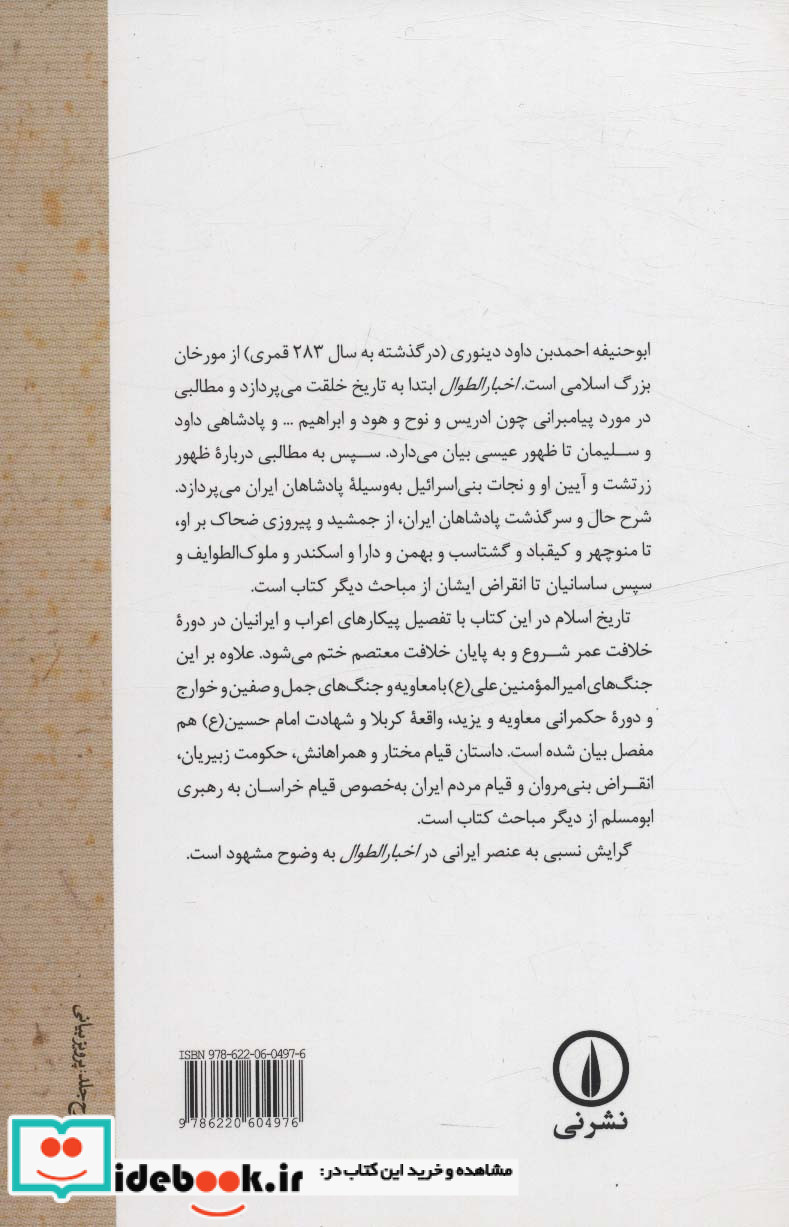 ابوحنیفه احمدبن داود دینوری (درگذشته به سال ۲۸۳ قمری) از مورخان
بزرگ اسلامی است. اخبارالطوال ابتدا به تاریخ خلقت می‌پردازد و مطالبی
در مورد پیامبرانی چون ادریس و نوح و هود و ابراهیم ... و پادشاهی داود
و سلیمان تا ظهور عیسی بیان می‌دارد. سپس به مطالبی دربارهٔ ظهور
زرتشت و آیین او و نجات بنی‌اسرائیل به‌وسیلهٔ پادشاهان ایران می‌پردازد.
شرح حال و سرگذشت پادشاهان ایران، از جمشید و پیروزی ضحاک بر او،
تا منوچهر و کیقباد و گشتاسب و بهمن و دارا و اسکندر و ملوک‌الطوایف و
سپس ساسانیان تا انقراض ایشان از مباحث دیگر کتاب است.
تاریخ اسلام در این کتاب با تفصیل پیکارهای اعراب و ایرانیان در دورهٔ
خلافت عمر شروع و به پایان خلافت معتصم ختم می‌شود. علاوه بر این
جنگ‌های امیرالمؤمنین علی(ع) با معاویه و جنگ‌های جمل و صفین و خوارج
و دورهٔ حکمرانی معاویه و یزید، واقعهٔ کربلا و شهادت امام حسین(ع) هم
مفصل بیان شده است. داستان قیام مختار و همراهانش، حکومت زبیریان،
انقراض بنی‌مروان و قیام مردم ایران به‌خصوص قیام خراسان به رهبری
ابومسلم از دیگر مباحث کتاب است.
گرایش نسبی به عنصر ایرانی در اخبارالطوال به وضوح مشهود است.
جلد: پرویز بیانی
ISBN 978-622-06-0497-6
9 786220 604976
نشرنی
مشاهده و خرید این کتاب در:
idebook.ir